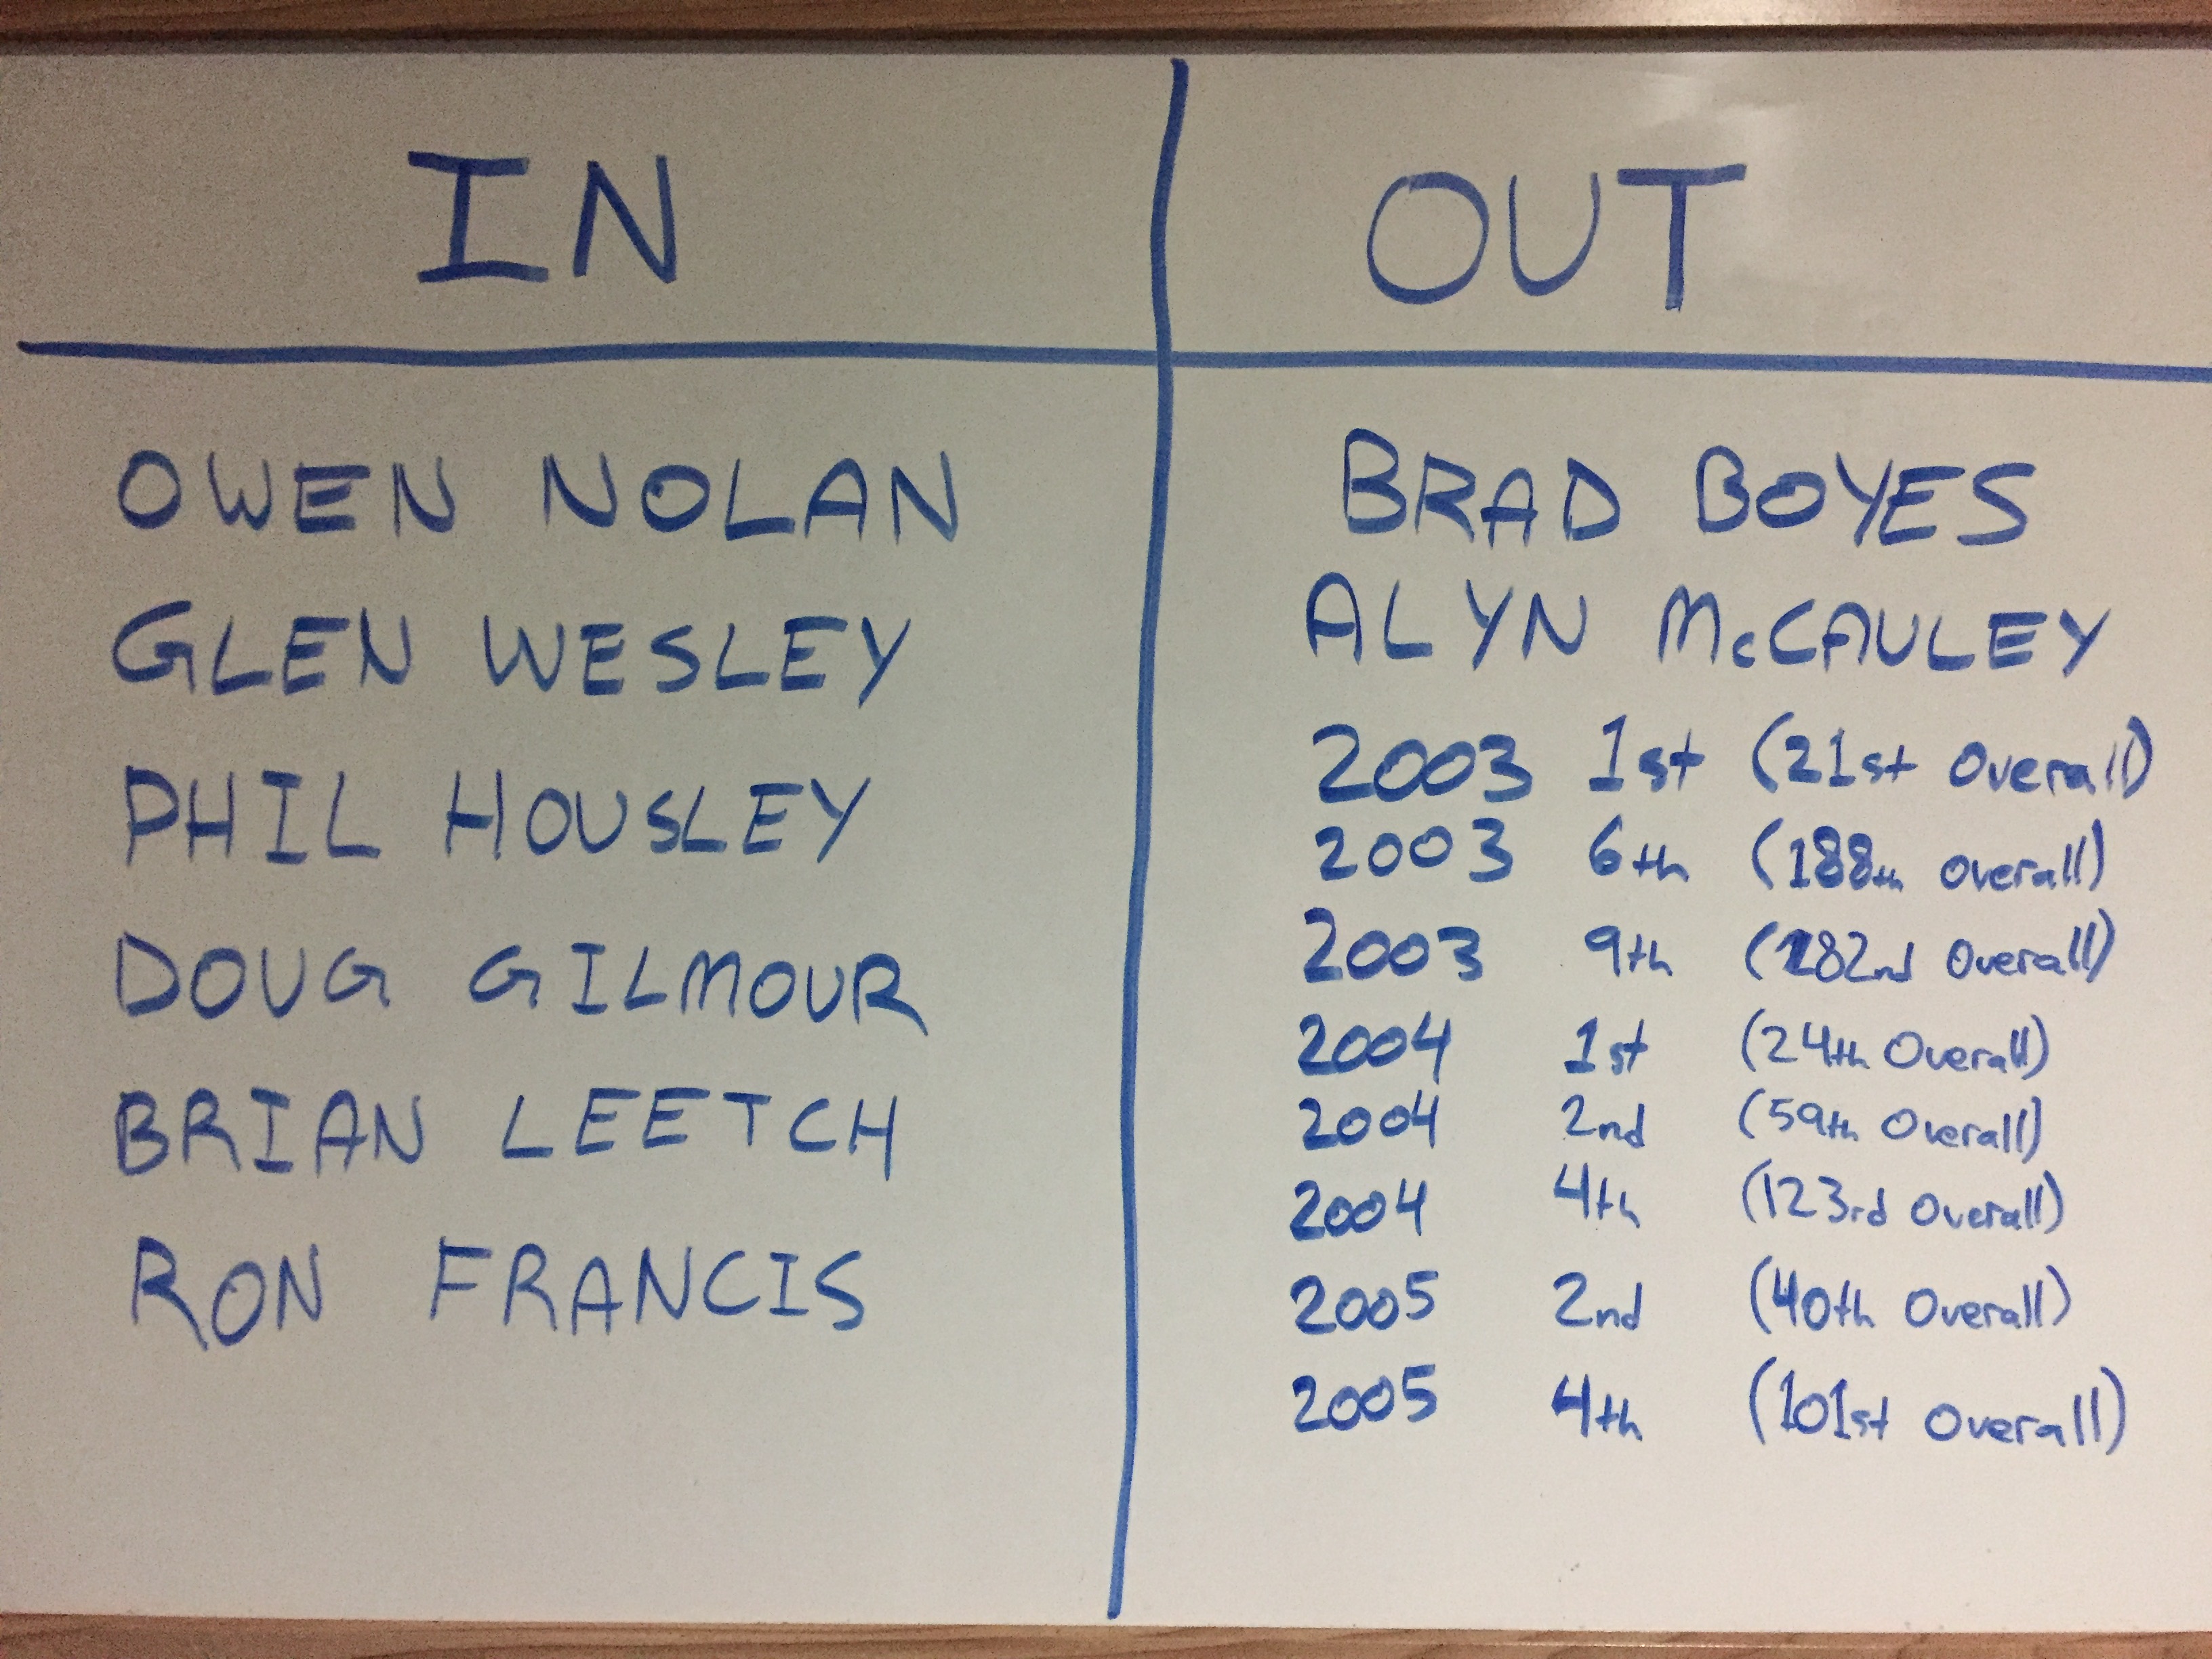 IN
OUT
OWEN NOLAN
GLEN WESLEY
PHIL HOUSLEY
DOUG GILMOUR
BRIAN LEETCH
RON FRANCIS
BRAD BOYES
ALYN McCAULEY
2003 1st (21st Overall)
2003 6th (188th Overall)
2003 9th (282nd Overall)
2004 1st (24th Overall)
2004 2nd (59th Overall)
2004 4th (123rd Overall)
2005 2nd (40th Overall)
2005 4th (101st Overall)